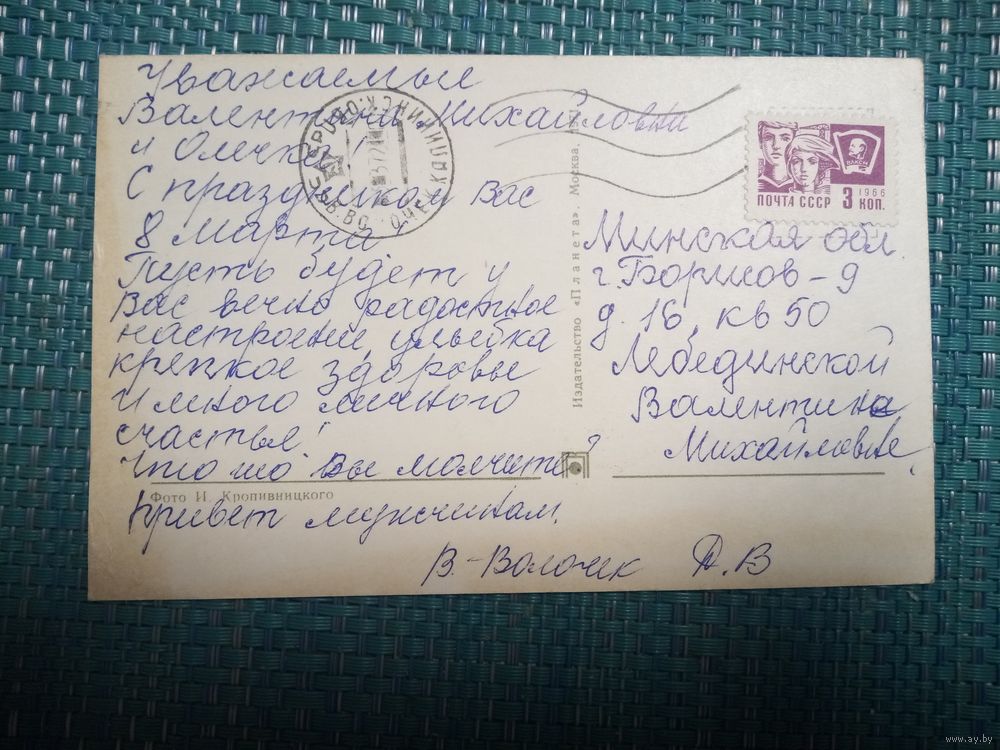 Уважаемые
Валентина Михайловна
и Олечка!
С праздником Вас
8 марта!
Пусть будет у
Вас вечно радостное
настроение, улыбка
крепкое здоровье
и много личного
счастья!
Что-то Вы молчите?
Привет мужчинам.
В.-Волочек Д.В
Фото И. Кропивницкого
Издательство «Планета». Москва,
ПОЧТА СССР 3 КОП.
1966
ВЛКСМ
Минская обл.
г. Борисов-9
д. 16, кв 50
Лебединской
Валентине
Михайловне.
www.ay.by